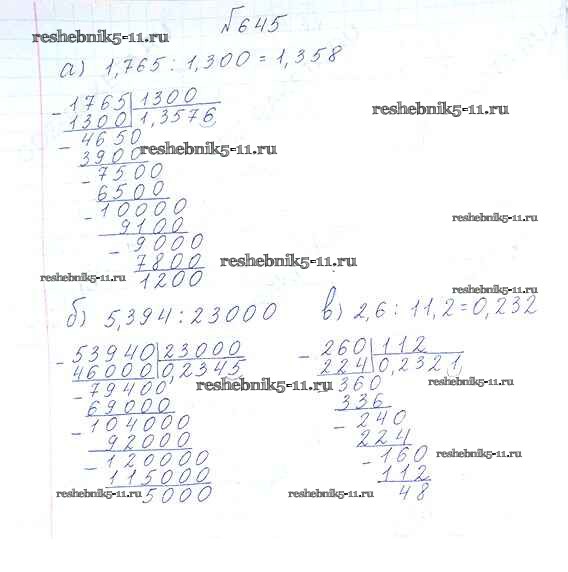 №645
reshebnik5-11.ru
а) 1,765 : 1,300 = 1,358
- 1765 | 1300
1300 | 1,3576
reshebnik5-11.ru
- 4650
reshebnik5-11.ru
3900
- 7500
6500
- 10000
9100
reshebnik5-11.ru
- 9000
7800
reshebnik5-11.ru
1200
reshebnik5-11.ru
reshebnik5-11.ru
б) 5,394 : 23000
- 53940 | 23000
46000 | 0,2345
- 79400
reshebnik5-11.ru
69000
- 104000
92000
- 120000
115000
5000
reshebnik5-11.ru
в) 2,6 : 11,2 = 0,232
- 260 | 112
224 | 0,2321
- 360
reshebnik5-11.ru
336
- 240
224
- 160
reshebnik5-11.ru
112
48
reshebnik5-11.ru